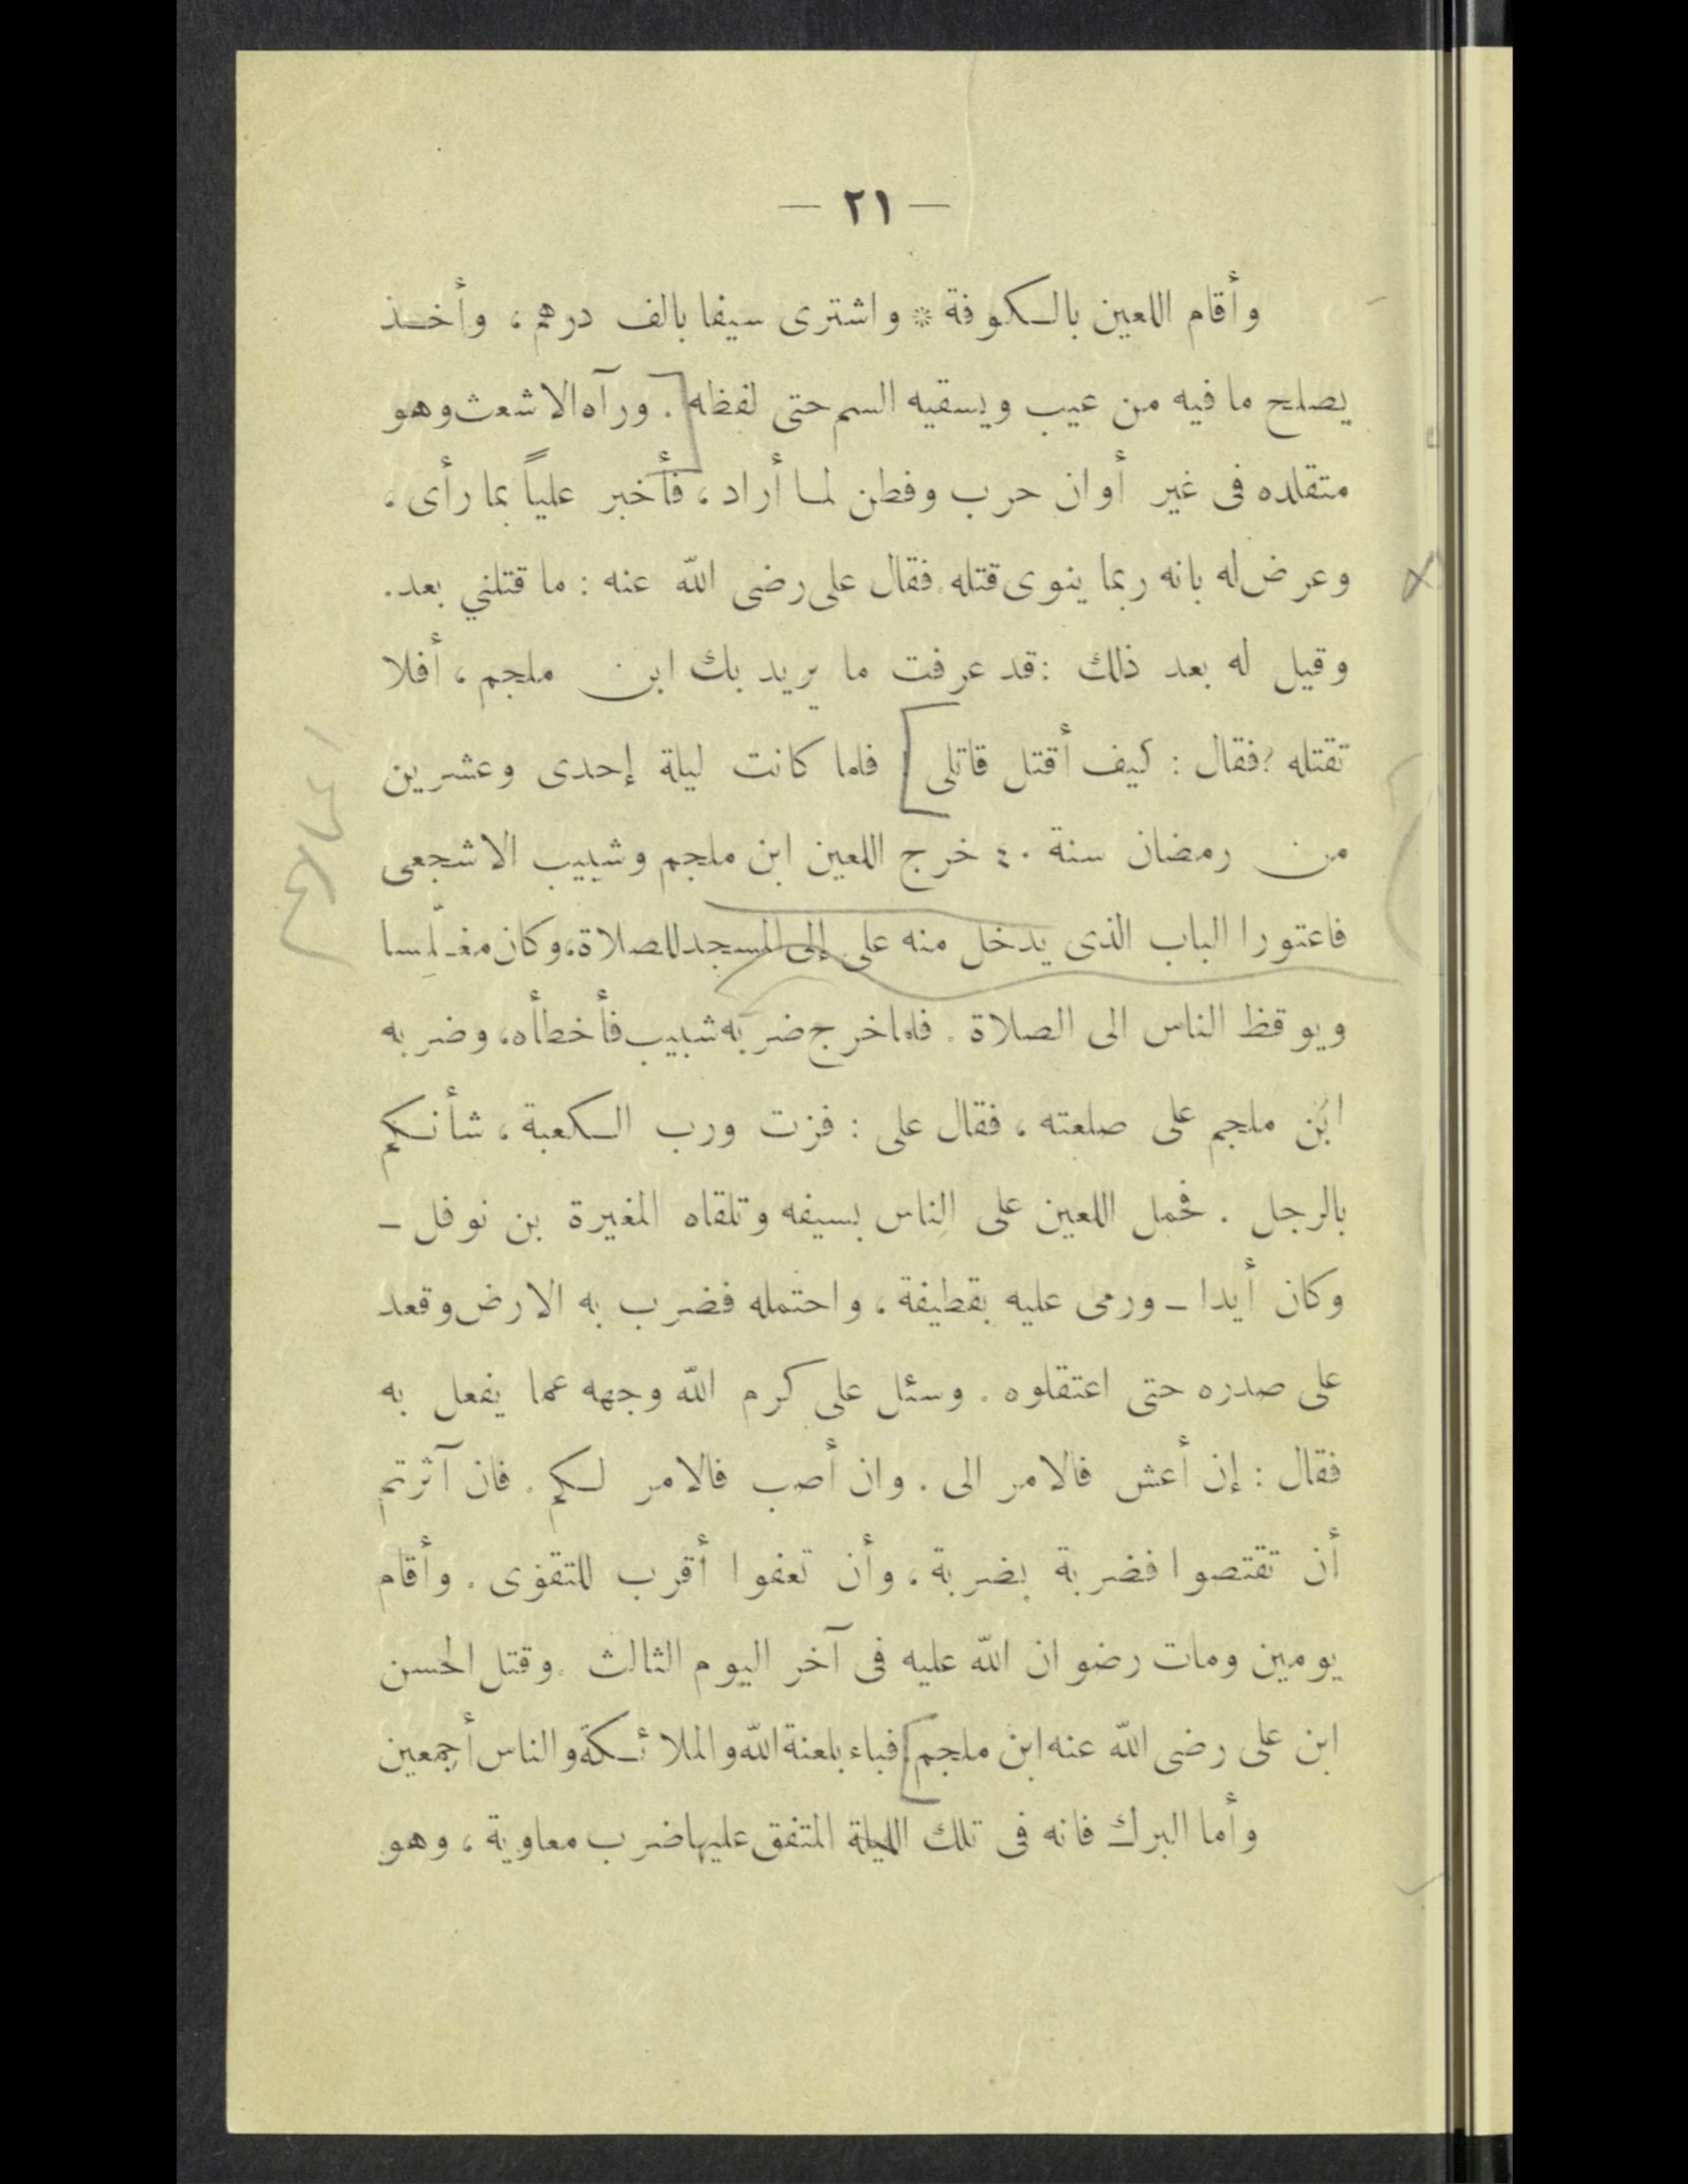 — ٢١ —
وأقام اللعين بالكوفة * واشترى سيفا بالف درهم ، وأخذ
يصلح ما فيه من عيب ويسقيه السم حتى لفظه . ورآه الاشعث وهو
متقلده فى غير أوان حرب وفطن لما أراد ، فأخبر علياً بما رأى ،
وعرض له بانه ربما ينوى قتله . فقال على رضى الله عنه : ما قتلني بعد .
وقيل له بعد ذلك : قد عرفت ما يريد بك ابن ملجم ، أفلا
تقتله ؟ فقال : كيف أقتل قاتلى . فلما كانت ليلة إحدى وعشرين
من رمضان سنة ٤٠ خرج اللعين ابن ملجم وشبيب الاشجعى
فاعتورا الباب الذى يدخل منه على إلى المسجد للصلاة ، وكان مغلِّسا
ويوقظ الناس الى الصلاة . فلما خرج ضربه شبيب فأخطأه ، وضربه
ابن ملجم على صلعته ، فقال على : فزت ورب الكعبة ، شأنكم
بالرجل . فحمل اللعين على الناس بسيفه وتلقاه المغيرة بن نوفل –
وكان أيدا – ورمى عليه بقطيفة ، واحتمله فضرب به الارض وقعد
على صدره حتى اعتقلوه . وسئل على كرم الله وجهه عما يفعل به
فقال : إن أعش فالامر الى . وان أصب فالامر لكم . فان آثرتم
أن تقتصوا فضربة بضربة ، وأن تعفوا أقرب للتقوى . وأقام
يومين ومات رضوان الله عليه فى آخر اليوم الثالث . وقتل الحسن
ابن على رضى الله عنه ابن ملجم . فباء بلعنة الله والملائكة والناس أجمعين
وأما البرك فانه فى تلك الليلة المتفق عليها ضرب معاوية ، وهو